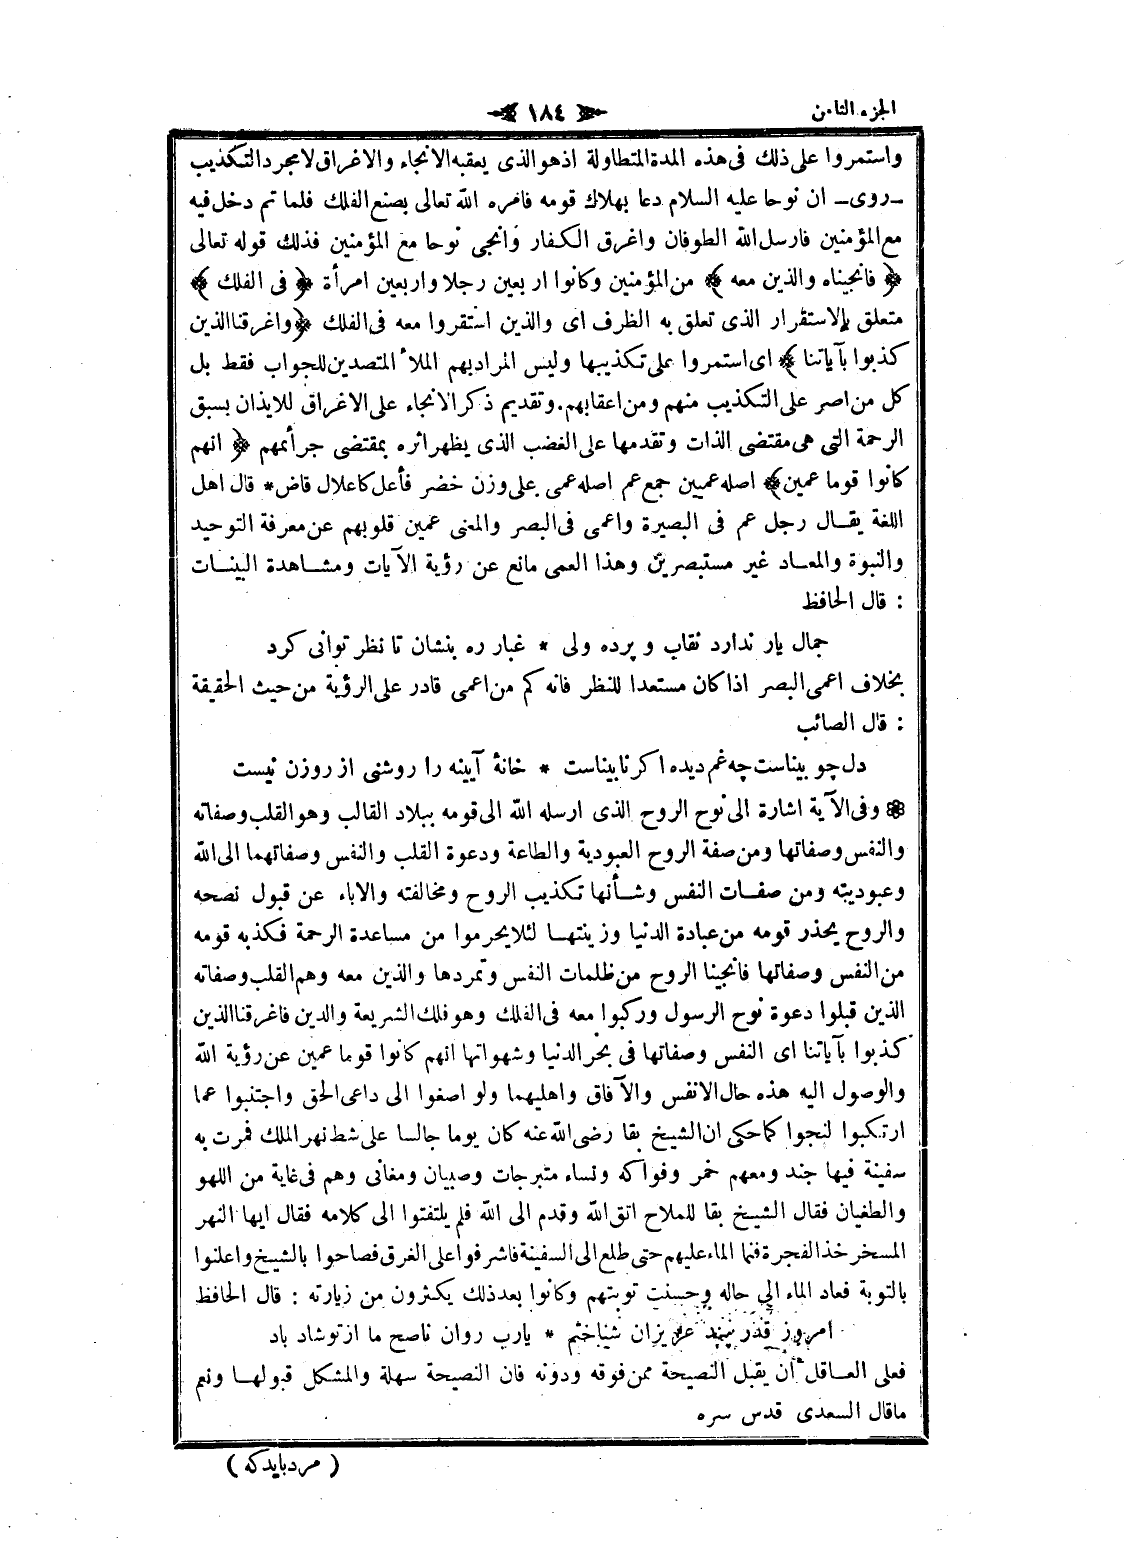 الجزء الثامن
١٨٤
واستمروا على ذلك فى هذه المدة المتطاولة اذ هو الذى يعقبه الانجاء والاغراق لا مجرد التكذيب
ـ روى ـ ان نوحا عليه السلام دعا بهلاك قومه فامره الله تعالى بصنع الفلك فلما تم دخل فيه
مع المؤمنين فارسل الله الطوفان واغرق الكفار وانجى نوحا مع المؤمنين فذلك قوله تعالى
﴿ فانجيناه والذين معه ﴾ من المؤمنين وكانوا اربعين رجلا واربعين امرأة ﴿ فى الفلك ﴾
متعلق بالاستقرار الذى تعلق به الظرف اى والذين استقروا معه فى الفلك ﴿ واغرقنا الذين
كذبوا بآياتنا ﴾ اى استمروا على تكذيبها وليس المراد بهم الملأ المتصدين للجواب فقط بل
كل من اصر على التكذيب منهم ومن اعقابهم. وتقديم ذكر الانجاء على الاغراق للايذان بسبق
الرحمة التى هى مقتضى الذات وتقدمها على الغضب الذى يظهر اثره بمقتضى جرائمهم ﴿ انهم
كانوا قوما عمين ﴾ اصله عميين جمع عم اصله عمى على وزن خضر فأعل كاعلال قاض * قال اهل
اللغة يقال رجل عم فى البصيرة واعمى فى البصر والمعنى عمين قلوبهم عن معرفة التوحيد
والنبوة والمعاد غير مستبصرين وهذا العمى مانع عن رؤية الآيات ومشاهدة البينات
: قال الحافظ
جمال يار ندارد نقاب و پرده ولى * غبار ره بنشان تا نظر توانى كرد
بخلاف اعمى البصر اذا كان مستعدا للنظر فانه كم من اعمى قادر على الرؤية من حيث الحقيقة
: قال الصائب
دل چو بيناست چه غم ديده اكر نابيناست * خانۀ آيينه را روشنى از روزن نيست
❁ وفى الآية اشارة الى نوح الروح الذى ارسله الله الى قومه ببلاد القالب وهو القلب وصفاته
والنفس وصفاتها ومن صفة الروح العبودية والطاعة ودعوة القلب والنفس وصفاتهما الى الله
وعبوديته ومن صفات النفس وشأنها تكذيب الروح ومخالفته والاباء عن قبول نصحه
والروح يحذر قومه من عبادة الدنيا وزينتها لئلا يحرموا من مساعدة الرحمة فكذبه قومه
من النفس وصفاتها فانجينا الروح من ظلمات النفس وتمردها والذين معه وهم القلب وصفاته
الذين قبلوا دعوة نوح الرسول وركبوا معه فى الفلك وهو فلك الشريعة والدين فاغرقنا الذين
كذبوا بآياتنا اى النفس وصفاتها فى بحر الدنيا وشهواتها انهم كانوا قوما عمين عن رؤية الله
والوصول اليه هذه حال الانفس والآفاق واهليهما ولو اصغوا الى داعى الحق واجتنبوا عما
ارتكبوا لنجوا كما حكى ان الشيخ بقا رضى الله عنه كان يوما جالسا على شط نهر الملك فمرت به
سفينة فيها جند ومعهم خمر وفواكه ونساء متبرجات وصبيان ومغانى وهم فى غاية من اللهو
والطغيان فقال الشيخ بقا للملاح اتق الله وقدم الى الله فلم يلتفتوا الى كلامه فقال ايها النهر
المسخر خذ الفجرة فنما الماء عليهم حتى طلع الى السفينة فاشرفوا على الغرق فصاحوا بالشيخ واعلنوا
بالتوبة فعاد الماء الى حاله وحسنت توبتهم وكانوا بعد ذلك يكثرون من زيارته : قال الحافظ
امروز قدر پند عزيزان شناختم * يارب روان ناصح ما از تو شاد باد
فعلى العاقل ان يقبل النصيحة ممن فوقه ودونه فان النصيحة سهلة والمشكل قبولها ونعم
ما قال السعدى قدس سره
( مرد بايدكه )